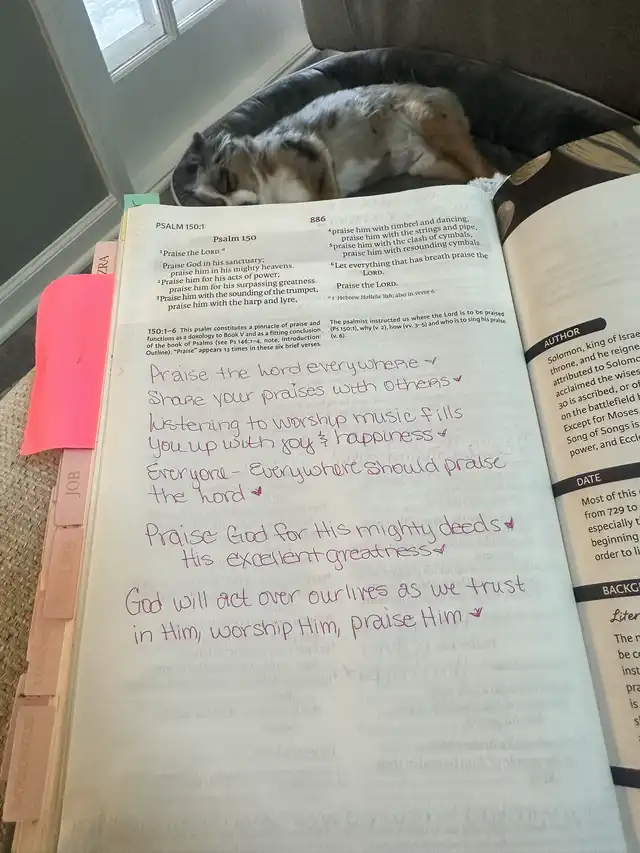 PSALM 150:1
886
Psalm 150
¹Praise the LORD.ᵃ
Praise God in his sanctuary;
praise him in his mighty heavens.
²Praise him for his acts of power;
praise him for his surpassing greatness.
³Praise him with the sounding of the trumpet,
praise him with the harp and lyre,
⁴praise him with timbrel and dancing,
praise him with the strings and pipe,
⁵praise him with the clash of cymbals,
praise him with resounding cymbals.
⁶Let everything that has breath praise the
LORD.
Praise the LORD.
Hebrew Hallelu Yah; also in verse 6
150:1–6 This psalm constitutes a pinnacle of praise and
functions as a doxology to Book V and as a fitting conclusion
of the book of Psalms (see Ps 146:1–4, note; Introduction:
Outline). "Praise" appears 13 times in these six brief verses.
The psalmist instructed us where the Lord is to be praised
(Ps 150:1), why (v. 2), how (vv. 3–5) and who is to sing his praise
(v. 6).
Praise the Lord everywhere
Share your praises with others
Listening to worship music fills
you up with joy & happiness
Everyone - Everywhere should praise
the Lord
Praise God for His mighty deeds
His excellent greatness
God will act over our lives as we trust
in Him, worship Him, praise Him
ZRA
JOB
AUTHOR
Solomon, king of Israe
throne, and he reigne
attributed to Solomo
acclaimed the wises
30 is ascribed, or o
on the battlefield
Except for Moses
Song of Songs is
power, and Eccl
DATE
Most of this
from 729 to
especially t
beginning
order to li
BACKG
Liter
The n
be c
inst
pra
is